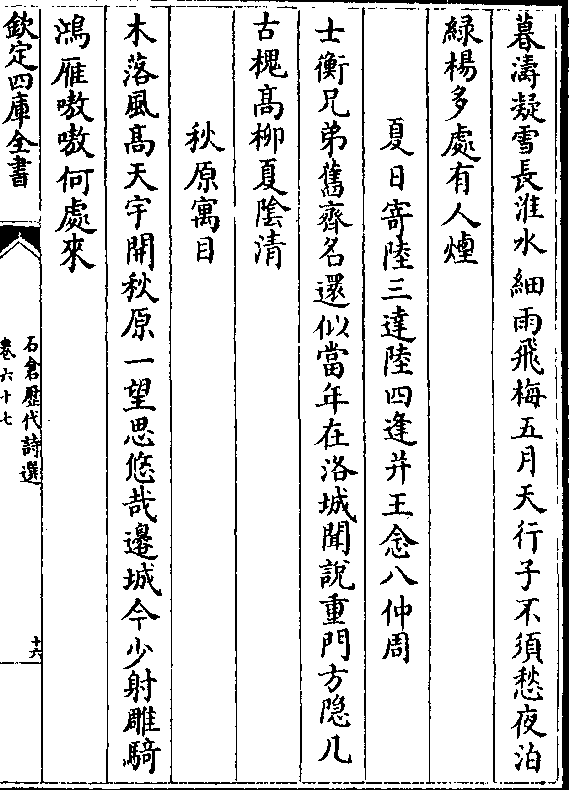 暮濤凝雪長淮水細雨飛梅五月天行子不須愁夜泊
緑楊多處有人煙
夏日寄陸三達陸四逢并王念八仲周
士衡兄弟舊齊名還似當年在洛城聞說重門方隠几
古槐髙柳夏隂清
秋原寓目
木落風髙天宇開秋原一望思悠哉邊城今少射雕騎
鴻雁嗷嗷何處來
欽定四庫全書
石倉歴代詩選
卷六十七
十六